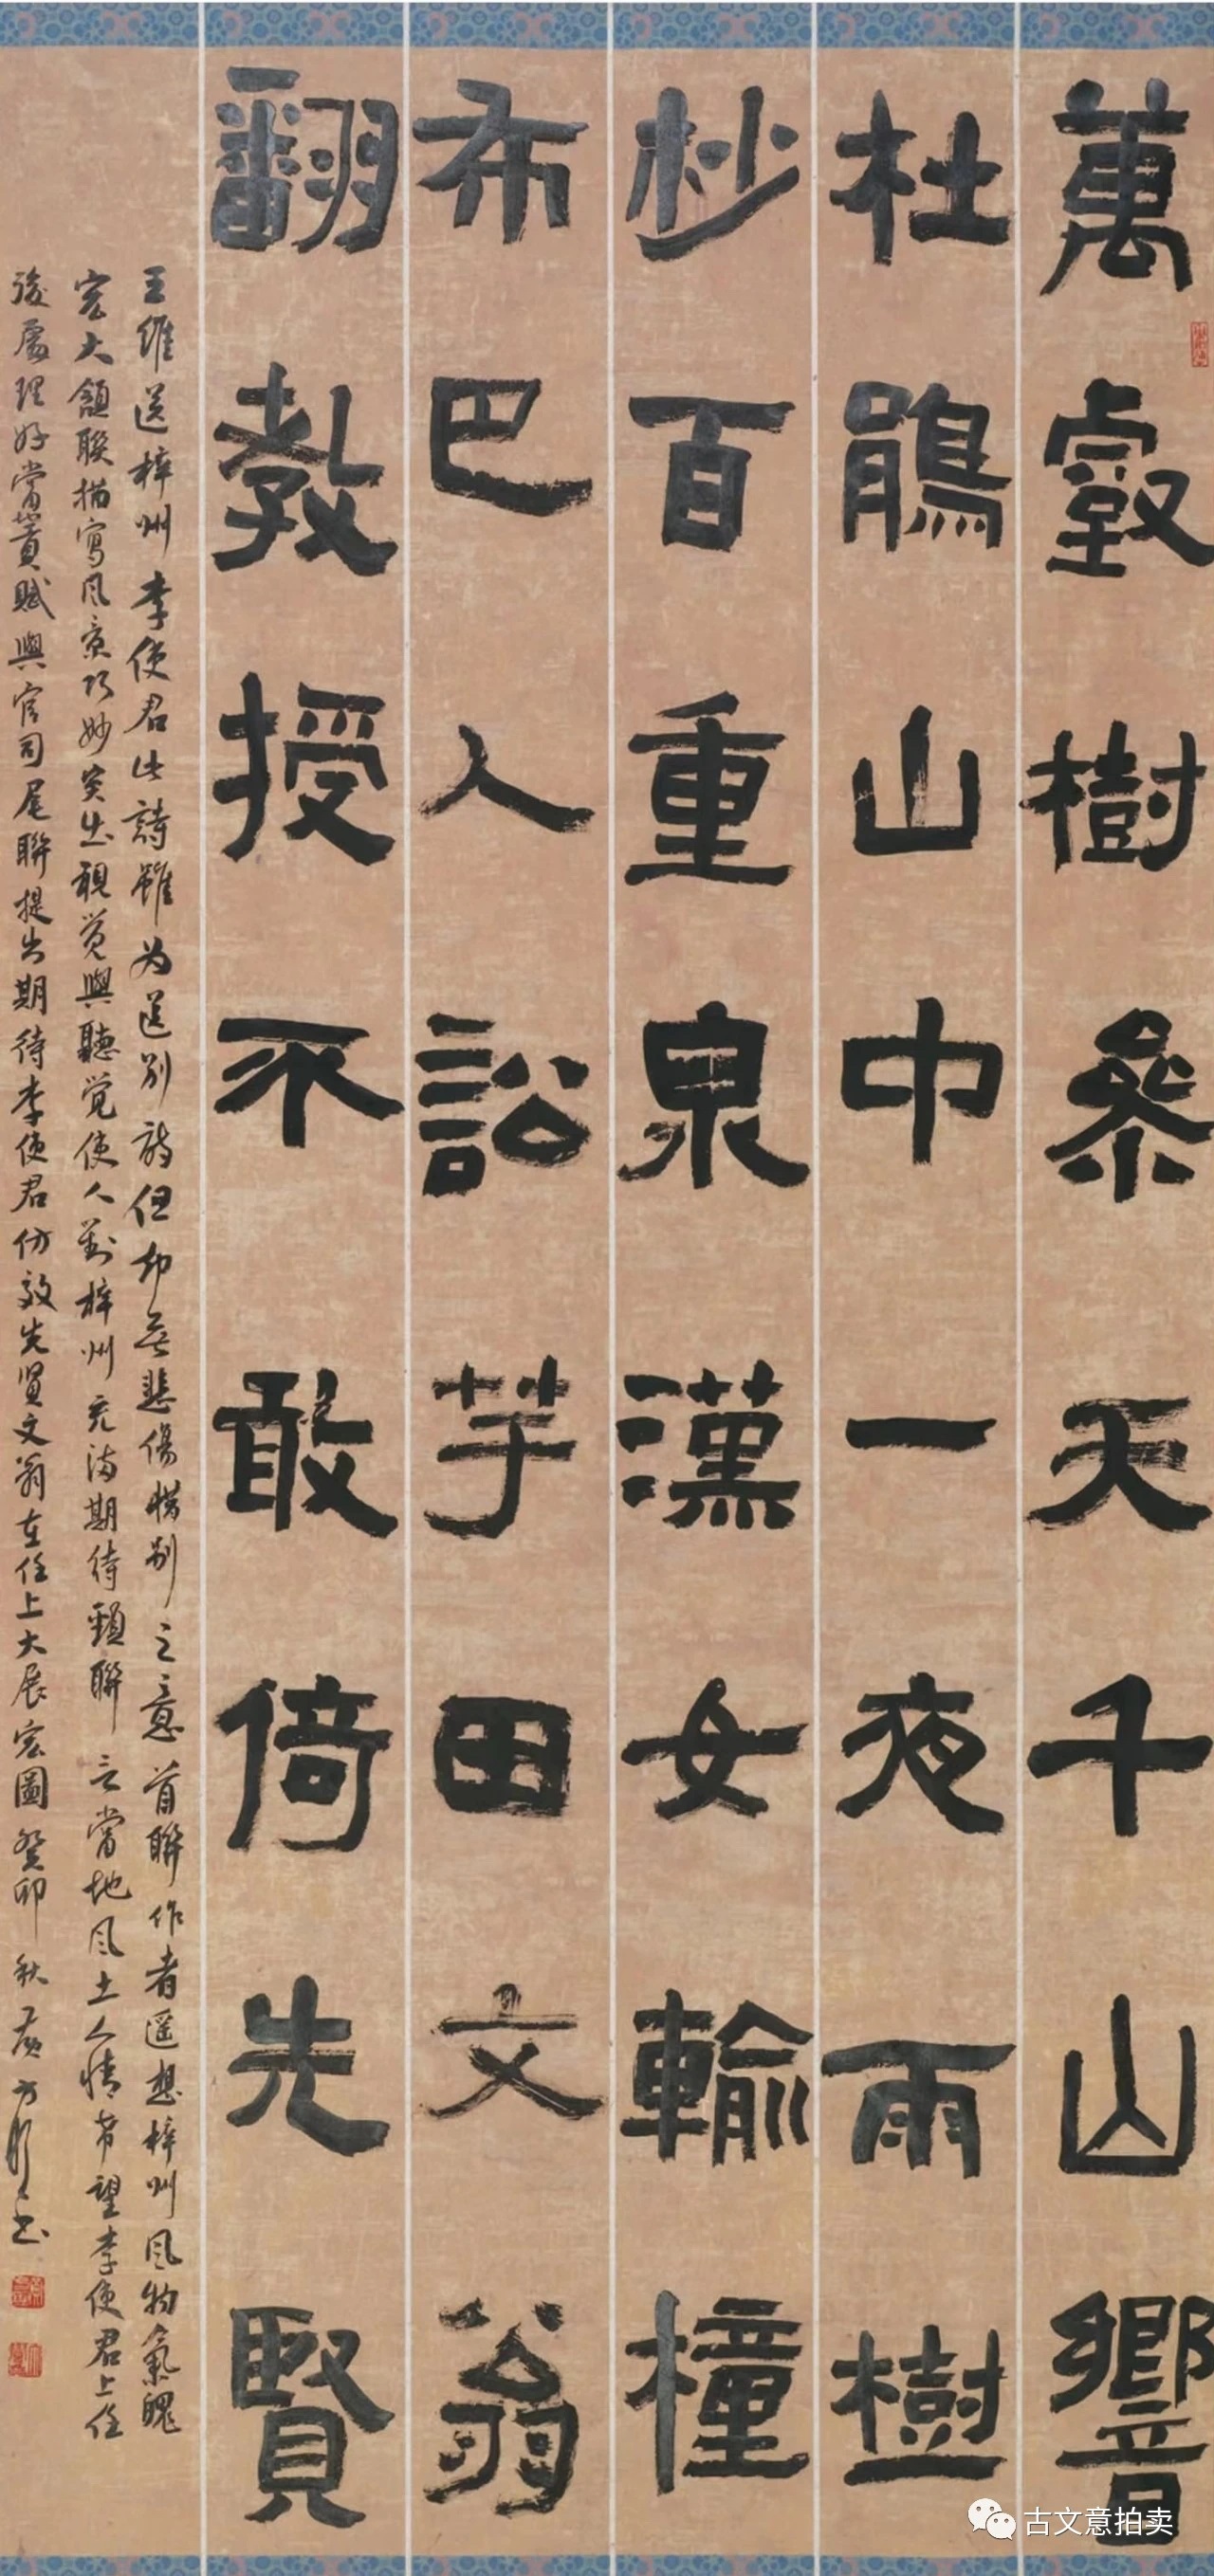 萬壑樹參天千山響
杜鵑山中一夜雨樹
杪百重泉漢女輸橦
布巴人訟芋田文翁
翻教授不敢倚先賢
王維送梓州李使君此詩雖为送别詩但却無悲傷惜别之意首聯作者遥想梓州风物氣魄
宏大頷聯描寫风景巧妙突出視觉與聽觉使人對梓州充满期待頸聯言當地风土人情希望李使君上任
後處理好當地賦與官司尾聯提出期待李使君仿效先贤文翁在任上大展宏圖癸卯秋
古文意拍卖